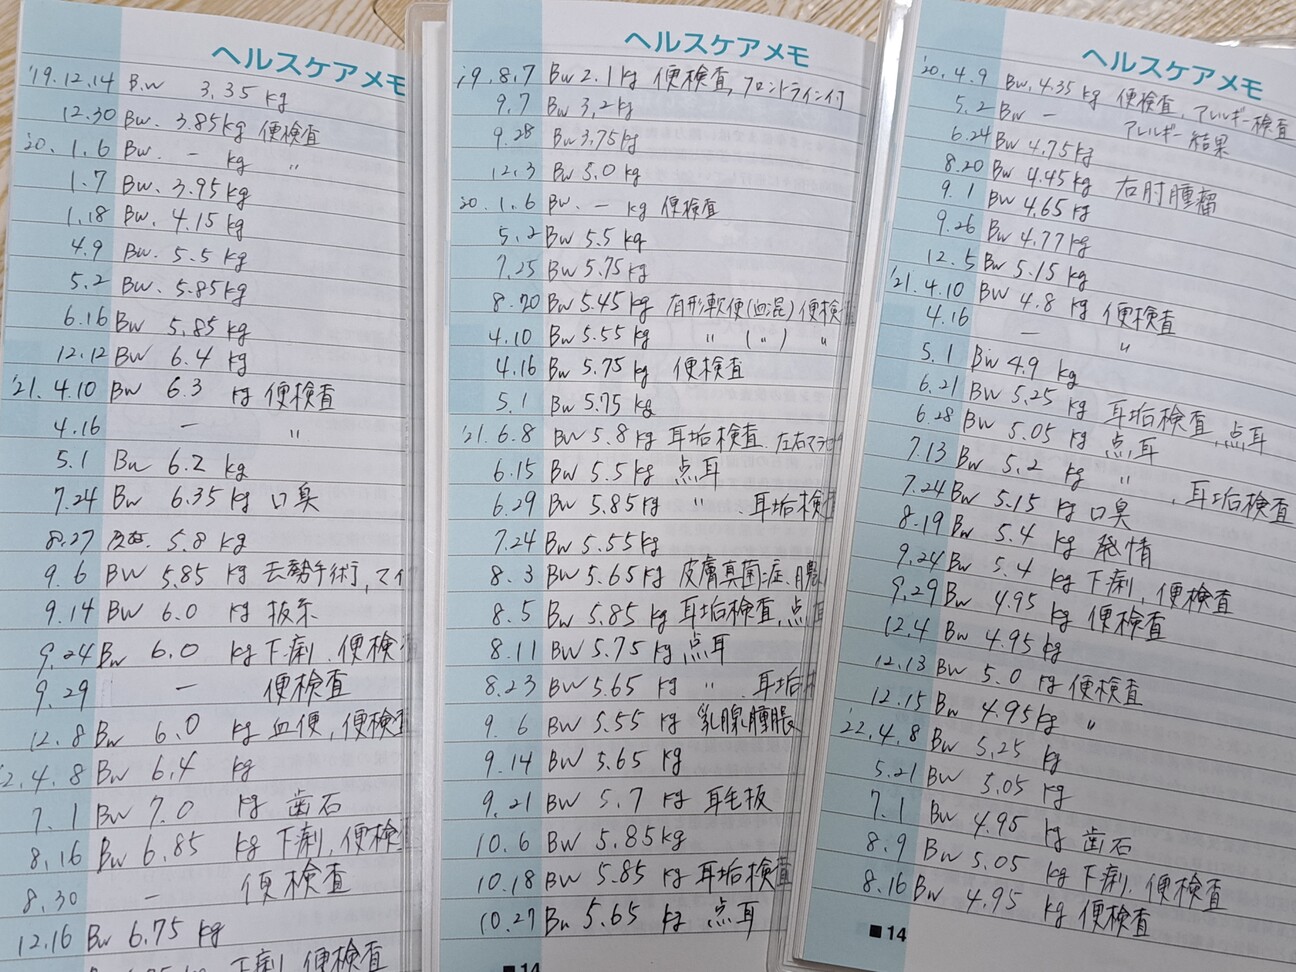 ヘルスケアメモ
'19.12.14 B.W 3.35 kg
12.30 Bw. 3.85kg 便検査
'20. 1.6 Bw. - kg 〃
1.7 Bw. 3.95 kg
1.18 Bw. 4.15 kg
4.9 Bw. 5.5 kg
5.2 Bw. 5.85kg
6.16 Bw 5.85 kg
12.12 Bw 6.4 kg
'21. 4.10 Bw 6.3 kg 便検査
4.16 - 〃
5.1 Bw 6.2 kg
7.24 Bw 6.35 kg 口臭
8.27 5.8 kg
9.6 BW 5.85 kg 去勢手術,マイ
9.14 BW 6.0 kg 抜糸
9.24 Bw 6.0 kg 下痢、便検
9.29 - 便検査
12.8 Bw 6.0 kg 血便,便検
2.4.8 Bw 6.4 kg
7.1 Bw 7.0 kg 歯石
8.16 Bw 6.85 kg 下痢,便検
8.30 - 便検査
12.16 Bw 6.75 kg
下痢、便検査
ヘルスケアメモ
'19.8.7 BW 2.1kg 便検査,フロントライン付
9.7 Bw 3.2kg
9.28 Bw 3.75kg
12.3 Bw 5.0 kg
'20.1.6 Bw. - kg 便検査
5.2 Bw 5.5 kg
7.25 Bw 5.75kg
8.20 BW 5.45 kg 有形軟便(血混)便検
4.10 Bw 5.55 kg 〃 (〃) 〃
4.16 BW 5.75 kg 便検査
5.1 Bw 5.75 kg
'21.6.8 BW 5.8 kg 耳垢検査. 左右マラセ
6.15 BW 5.5 kg 点耳
6.29 BW 5.85kg 〃 、耳垢検
7.24 Bw 5.55kg
8.3 BW 5.65kg 皮膚真菌症、
8.5 BW 5.85 kg 耳垢検査,点
8.11 BW 5.75 kg 点耳
8.23 BW 5.65 kg 〃 、耳垢
9.6 BW 5.55 kg 乳腺腫脹
9.14 BW 5.65 kg
9.21 BW 5.7 kg 耳毛抜
10.6 BW 5.85kg
10.18 BW 5.85 kg 耳垢検査
10.27 Bw 5.65 kg 点耳
■14
ヘルスケアメモ
'20.4.9 Bw. 4.35 kg 便検査、アレルギー検査
5.2 Bw - アレルギー結果
6.24 BW 4.75kg
8.20 BW 4.45kg 右肘腫瘤
9.1 BW 4.65 kg
9.26 Bw 4.77kg
12.5 Bw 5.15 kg
'21.4.10 BW 4.8 kg 便検査
4.16 - 〃
5.1 BW 4.9 kg
6.21 BW 5.25 kg 耳垢検査,点耳
6.28 BW 5.05 kg 点耳
7.13 BW 5.2 kg 〃 、耳垢検査
7.24 BW 5.15 kg 口臭
8.19 Bw 5.4 kg 発情
9.24 Bw 5.4 kg 下痢,便検査
9.29 BW 4.95 kg 便検査
12.4 BW 4.95 kg
12.13 Bw 5.0 kg 便検査
12.15 Bw 4.95kg 〃
'22.4.8 BW 5.25 kg
5.21 BW 5.05 kg
7.1 BW 4.95 kg 歯石
8.9 BW 5.05 kg 下痢、便検査
8.16 Bw 4.95 kg 便検査
■14